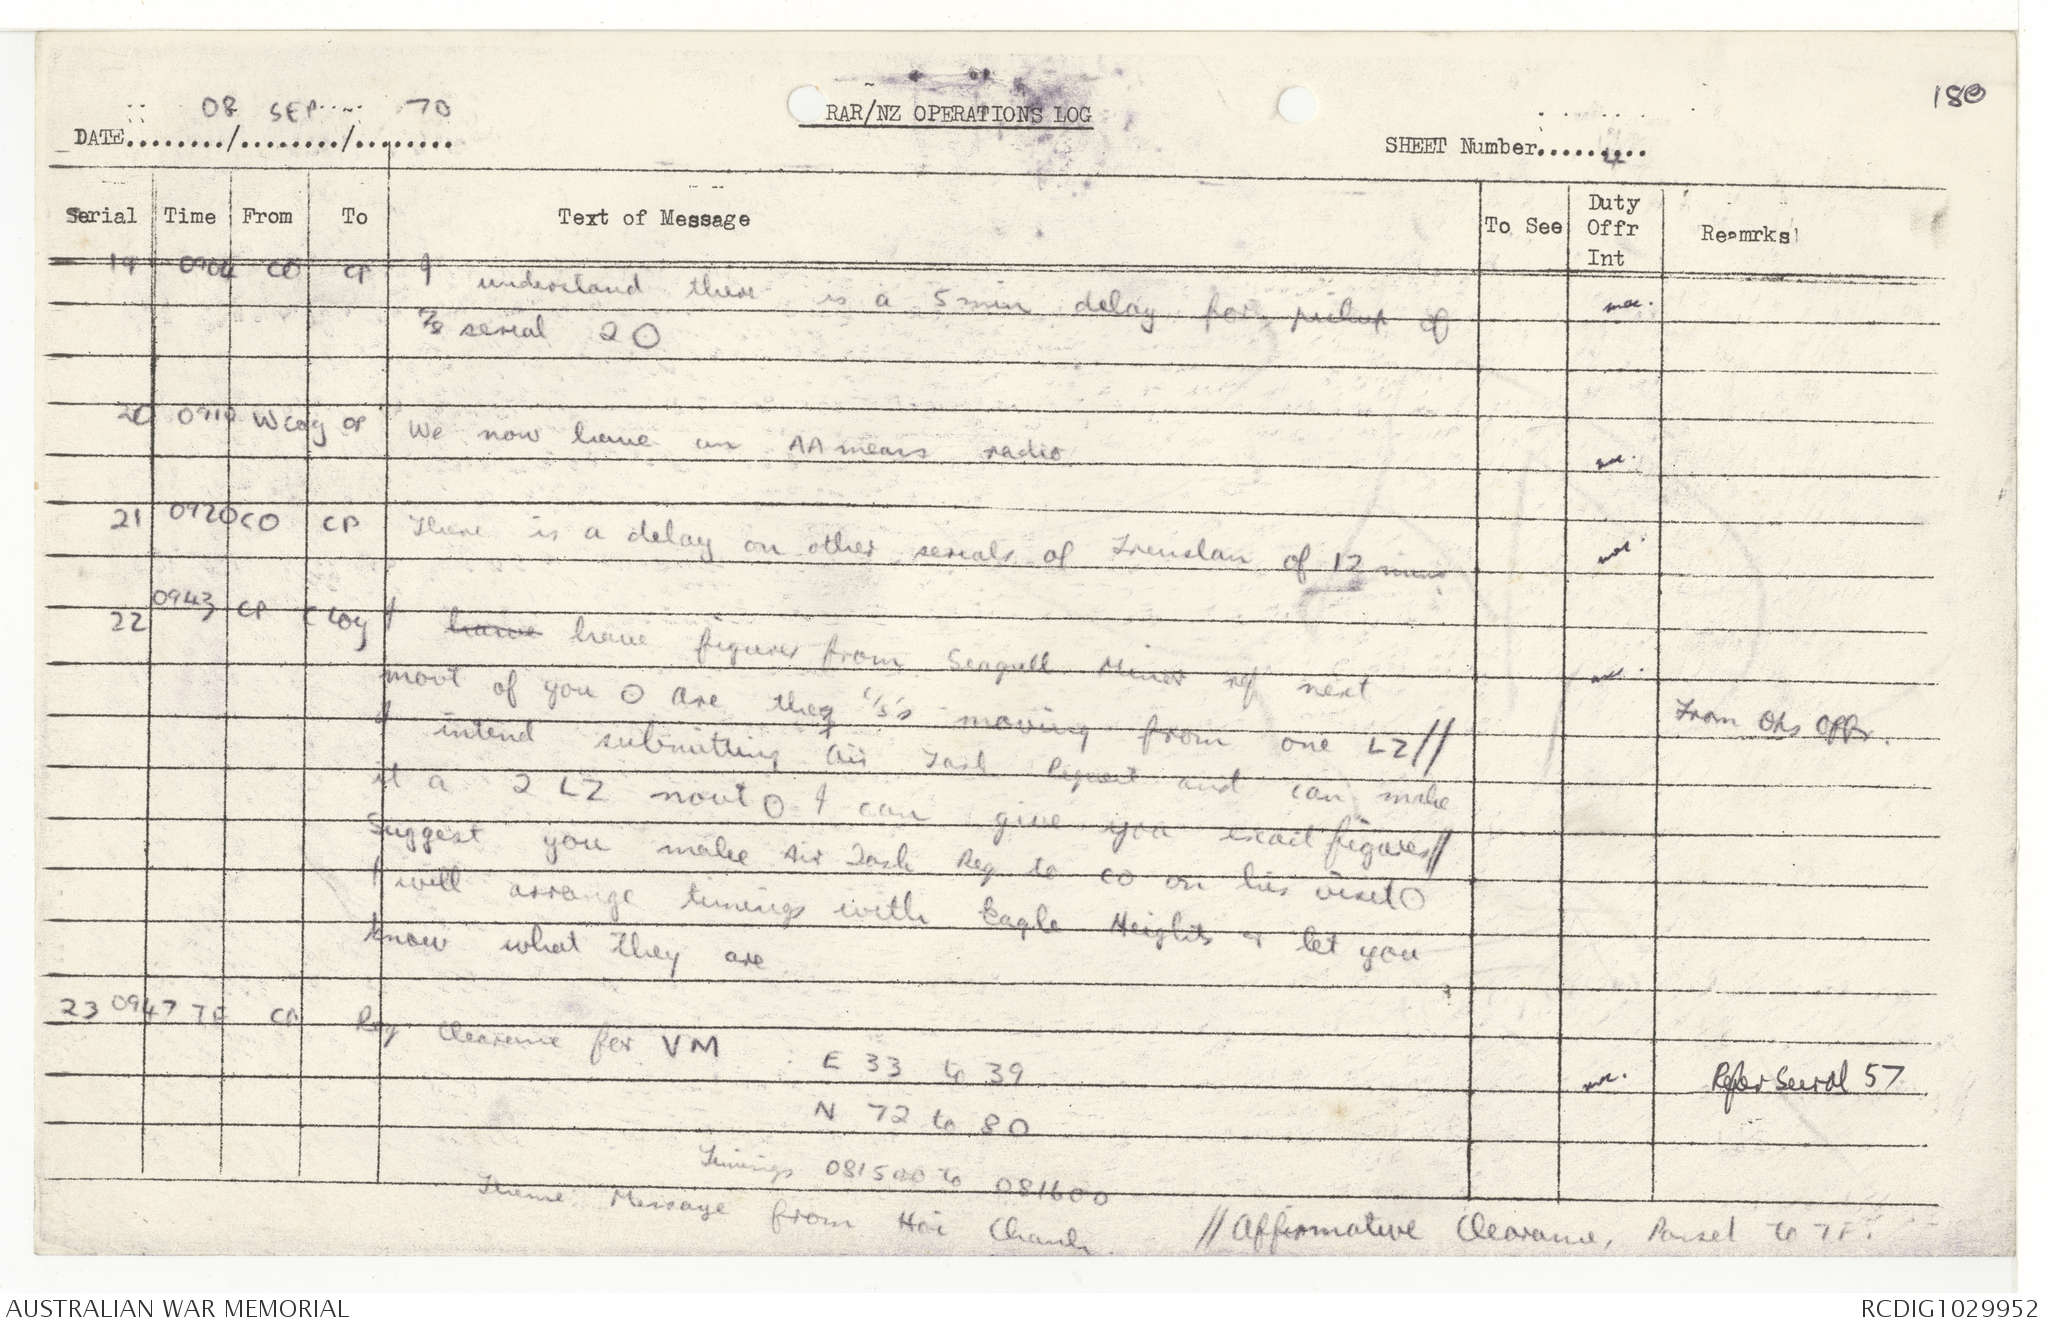 180
08 SEP 70
RAR/NZ OPERATIONS LOG
DATE......../......../........
SHEET Number..........
4
Serial Time From To Text of Message To See Duty Offr Int Reamrks
19 0904 CO CP I understand there is a 5 min delay for pickup of
serial 20
20 0910 W Coy CP We now have an AA means radio
21 0920 CO CP There is a delay on other serials of of 12 mins
22 0943 CP C Coy I have have figures from Seagull Minor ref next
mout of you O Are they moving from one LZ//
From Ops Offr.
I intend submitting Air Task Request and can make
it a 2 LZ mout O I can give you exact figures//
Suggest you make Air Task Req to CO on his visit O
I will arrange timings with Eagle Heights & let you
know what they are
23 0947 TF CP Req Clearance for VM E 33 to 39
Refer Serial 57
N 72 to 80
Timings 081500 to 081600
Theme Message from Hoi Chanh // Affirmative Clearance, Passed to TF.
AUSTRALIAN WAR MEMORIAL
RCDIG1029952